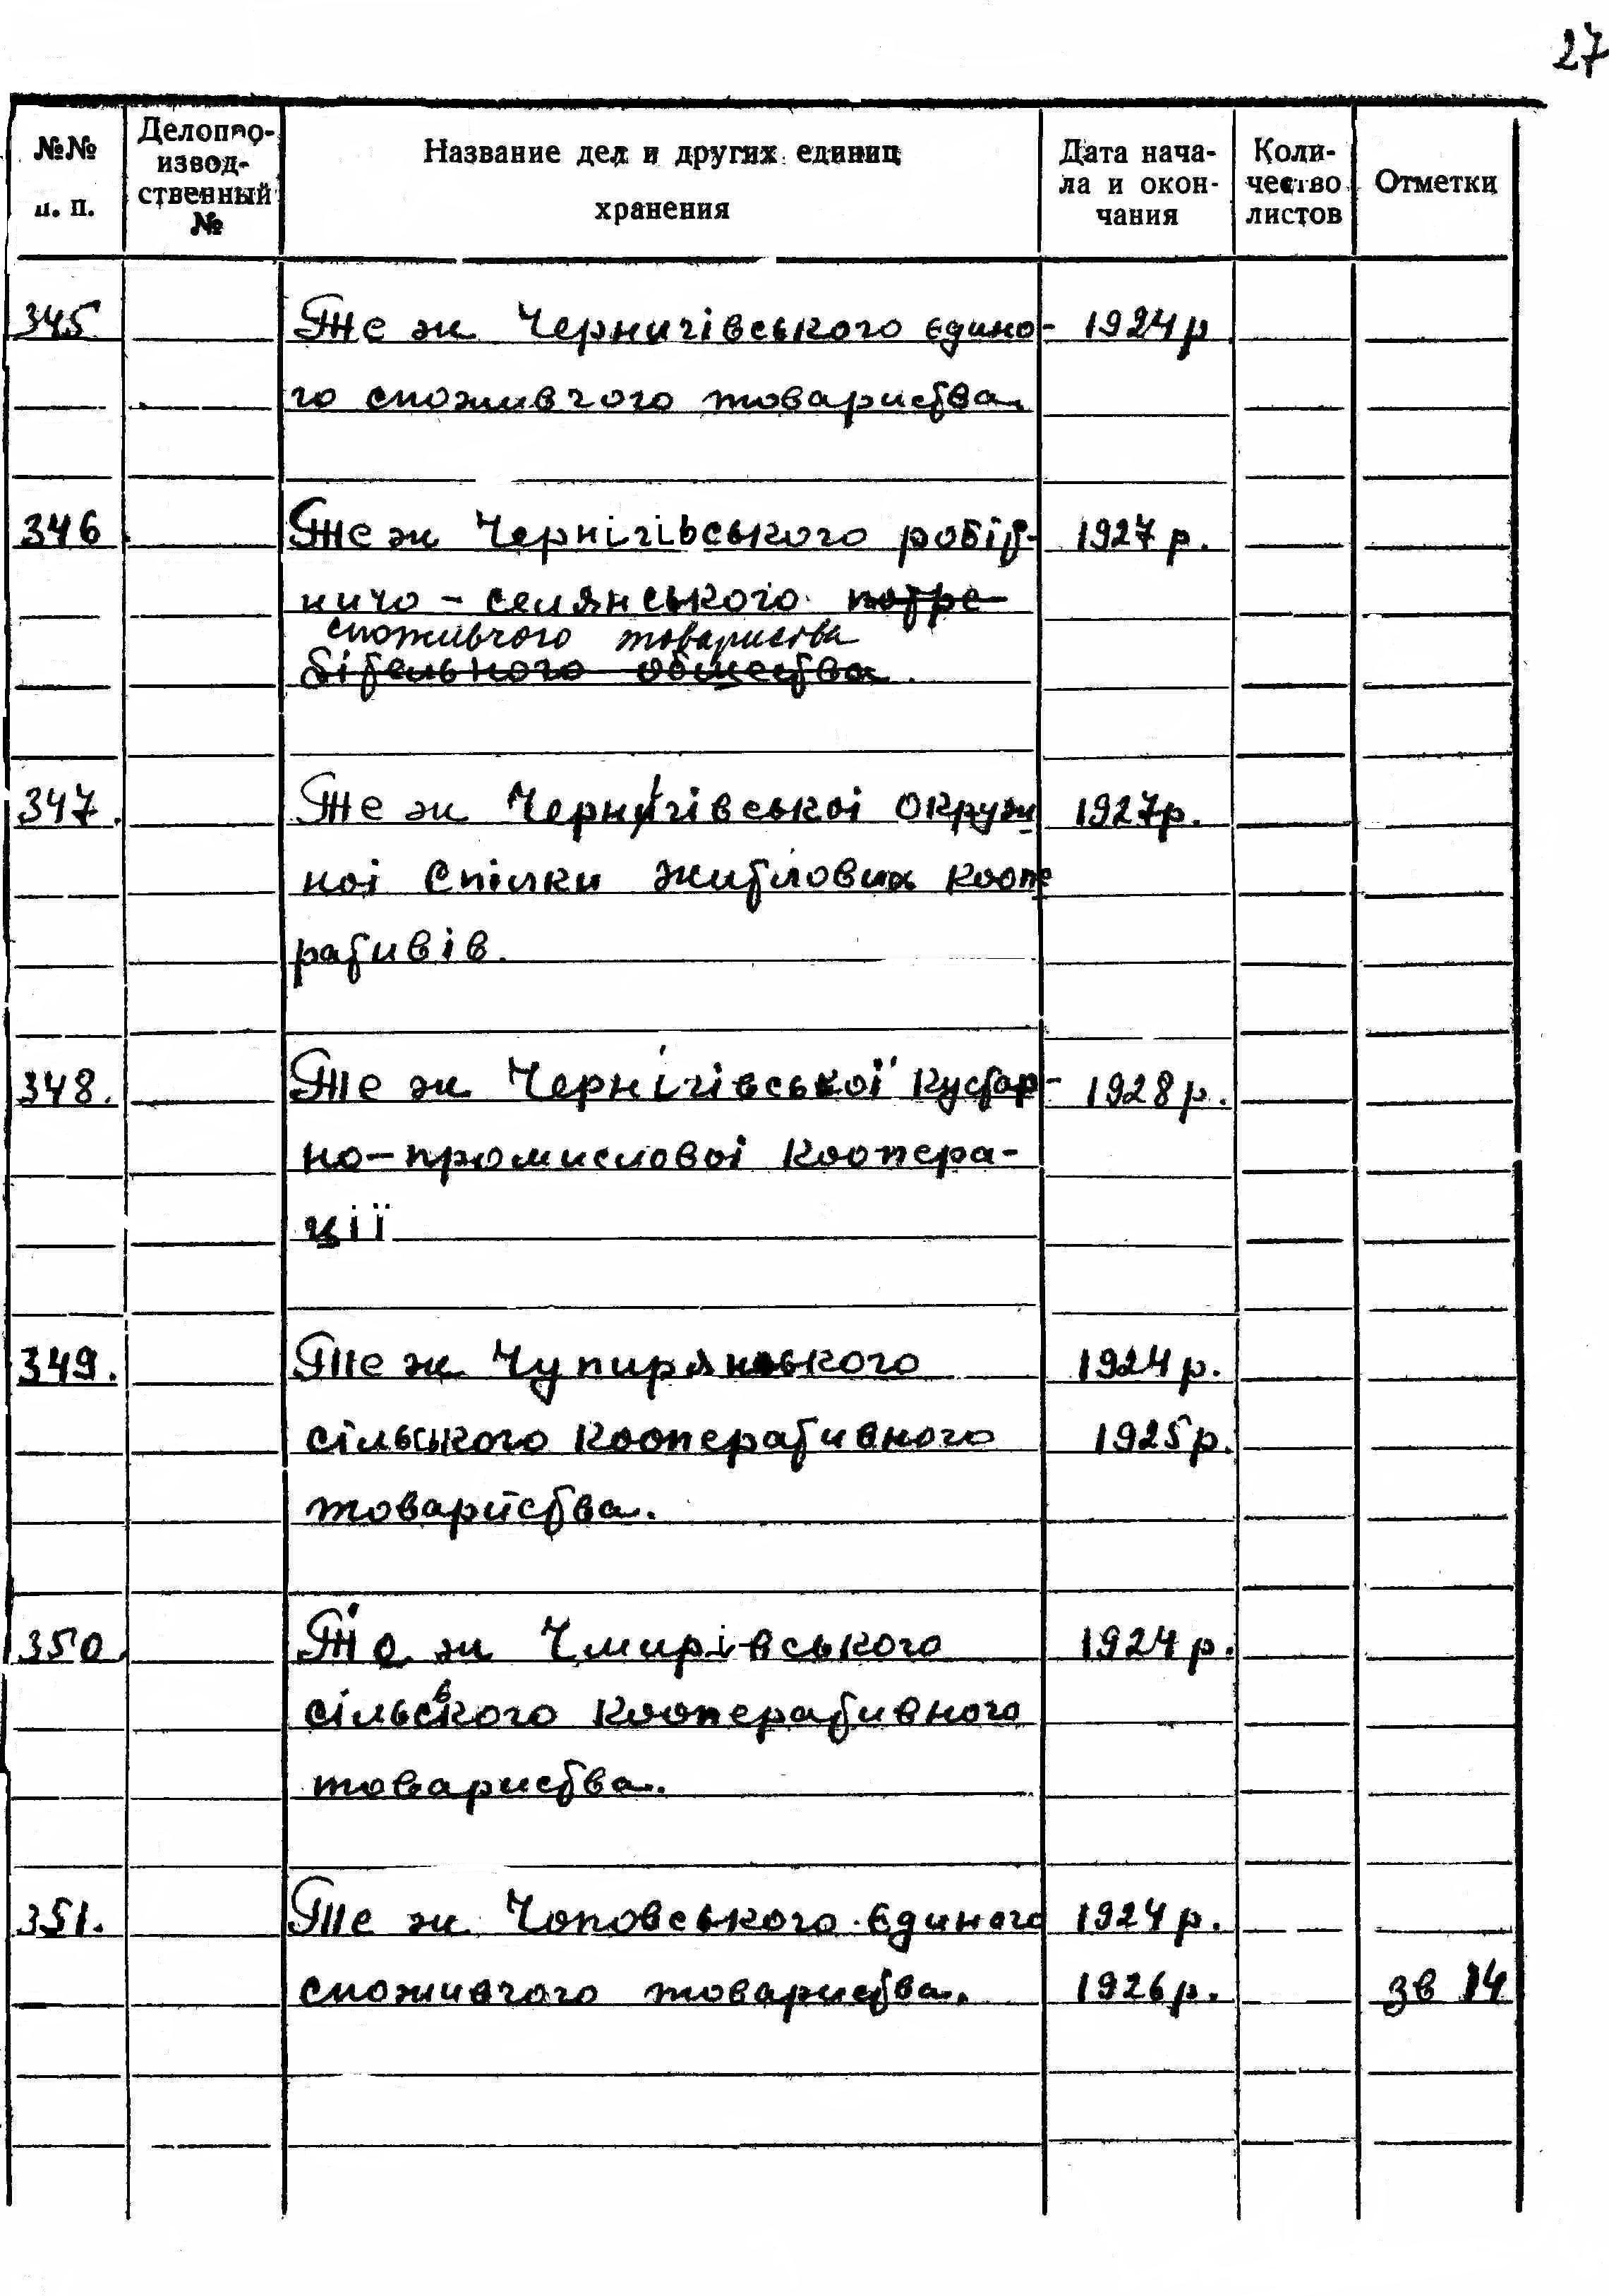 27
№№ п. п.
Делопро-
извод-
ственный
№
Название дел и других единиц
хранения
Дата нача-
ла и окон-
чания
Коли-
чество
листов
Отметки
345 Те ж Чернигівського єдино- 1924р
го споживчого товариства.
346 Те ж Чернігівського робіт- 1927р.
ничо-селянського потре
споживчого товариства
бітельного общества.
347. Те ж Чернігівскоі окруж 1927р.
ноі спілки житлових коопе
ративів.
348. Те ж Чернігівської кустар- 1928р.
но-промисловоі коопера-
ції
349. Те ж Чупирянського 1924р.
сільського кооперативного 1925р.
товариства.
350. То ж Чмирівського 1924р.
сільського кооперативного
товариства.
351. Те ж Чоповського єдиного 1924р.
споживчого товариства. 1926р. зв 14